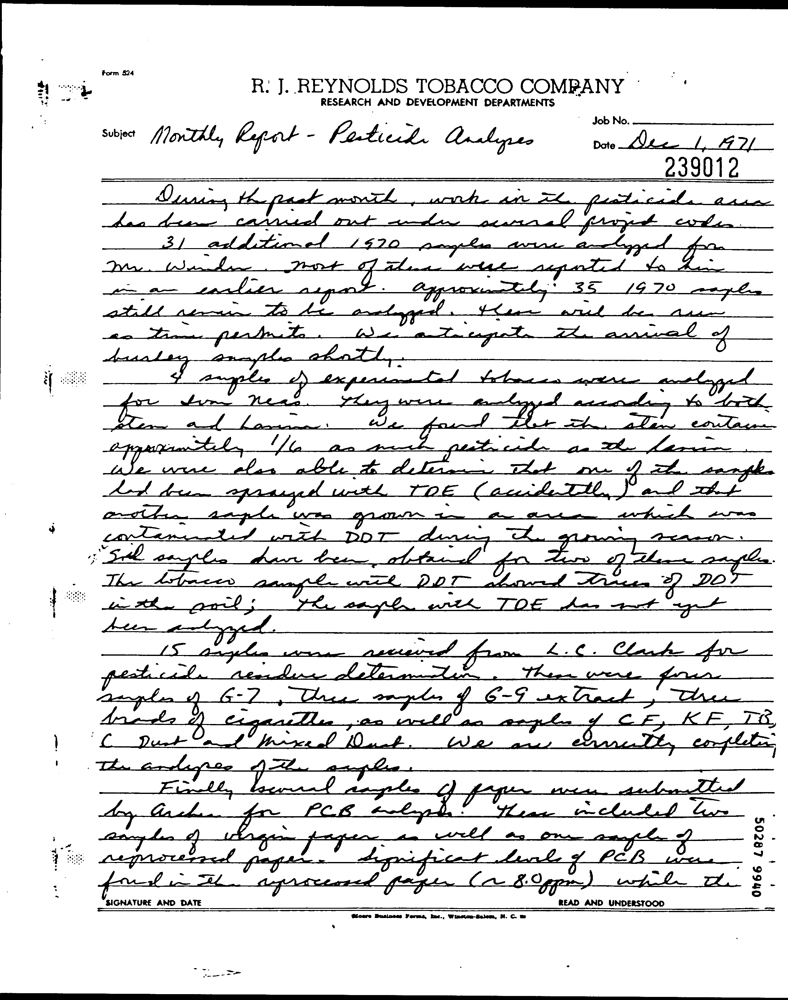 Form 524
R. J. REYNOLDS TOBACCO COMPANY
RESEARCH AND DEVELOPMENT DEPARTMENTS
Job No.
Subject Monthly Report - Pesticide Analyses
Date Dec 1, 1971
239012
During the past month, work in the pesticide area
has been carried out under several project codes.
31 additional 1970 samples were analyzed for
Mr. Winder. Most of these were reported to him
in an earlier report. Approximately 35 1970 samples
still remain to be analyzed. These will be run
as time permits. We anticipate the arrival of
burley samples shortly.
4 samples of experimental tobacco were analyzed
for Tom Neas. They were analyzed according to both
stem and lamina. We found that the stem contains
approximately 1/6 as much pesticide as the lamina.
We were also able to determine that one of the samples
had been sprayed with TDE (accidentally) and that
another sample was grown in an area which was
contaminated with DDT during the growing season.
Soil samples have been obtained for two of these samples.
The tobacco sample with DDT showed traces of DDT
in the soil; the sample with TDE has not yet
been analyzed.
15 samples were recieved from L. C. Clark for
pesticide residue determination. These were four
samples of G-7, three samples of G-9 extract, three
brands of cigarettes, as well as samples of CF, KF, TB,
C Dust and Mixed Dust. We are currently completing
the analyses of the samples.
Finally several samples of paper were submitted
by Archer for PCB analysis. These included two
samples of virgin paper as well as one sample of
reprocessed paper. Significant levels of PCB were
found in the reprocessed paper (~ 8.0 ppm) while the
SIGNATURE AND DATE
READ AND UNDERSTOOD
Moore Business Forms, Inc., Winston-Salem, N. C.
50287 9940